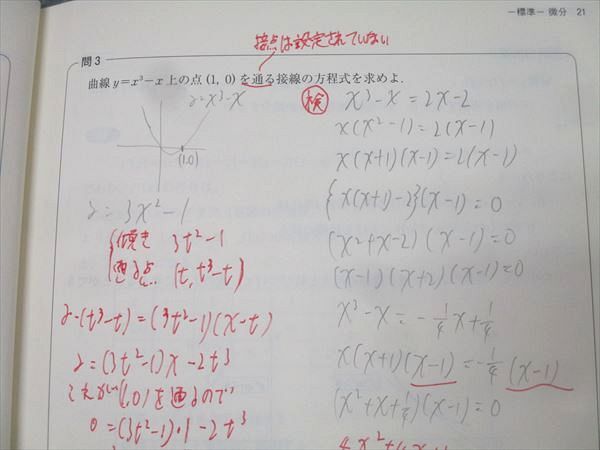 ー標準ー 微分 21
接点は設定されていない
問3
曲線 y=x³−x 上の点 (1, 0) を通る接線の方程式を求めよ.
y=x³-x
(1,0)
y=3x²-1
傾き 3t²-1
通る点 (t, t³-t)
y-(t³-t)=(3t²-1)(x-t)
y=(3t²-1)x-2t³
これが(1,0)を通るので
0=(3t²-1)・1-2t³
検
x³-x=2x-2
x(x²-1)=2(x-1)
x(x+1)(x-1)=2(x-1)
{x(x+1)-2}(x-1)=0
(x²+x-2)(x-1)=0
(x-1)(x+2)(x-1)=0
x³-x=-1/4x+1/4
x(x+1)(x-1)=-1/4(x-1)
(x²+x+1/4)(x-1)=0